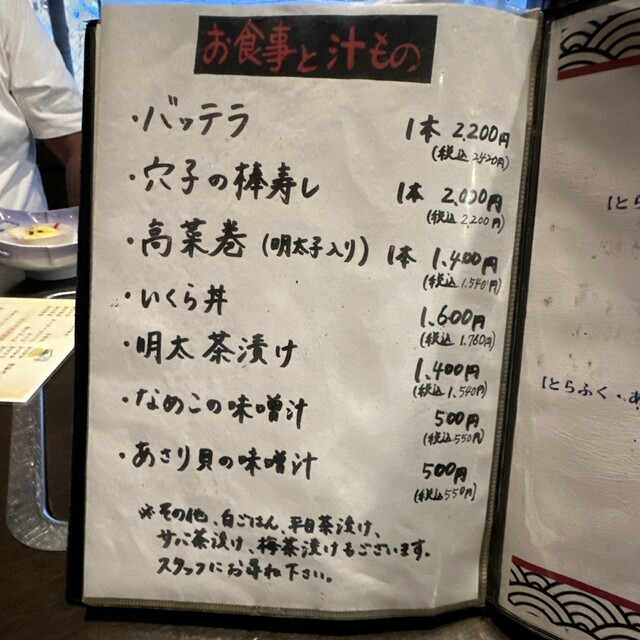 お食事と汁もの
・バッテラ 1本 2,200円
(税込 2,420円)
・穴子の棒寿し 1本 2,000円
(税込 2,200円)
・高菜巻(明太子入り) 1本 1,400円
(税込 1,540円)
・いくら丼 1,600円
(税込 1,760円)
・明太茶漬け 1,400円
(税込 1,540円)
・なめこの味噌汁 500円
(税込 550円)
・あさり貝の味噌汁 500円
(税込 550円)
※その他、白ごはん、平目茶漬け、
サバ茶漬け、梅茶漬けもございます。
スタッフにお尋ね下さい。
(とら
(とらふく・、あ